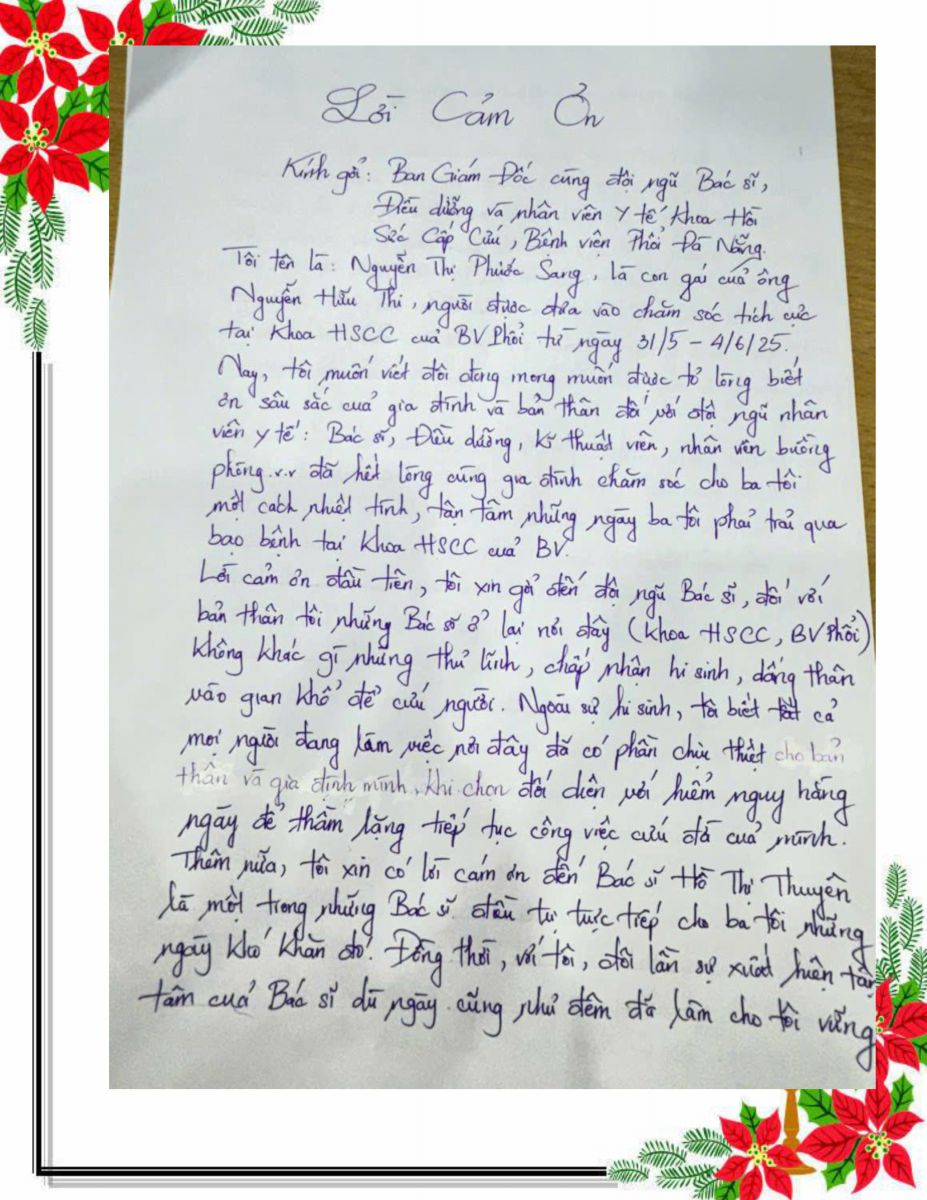 Lời Cảm Ơn
Kính gởi: Ban Giám Đốc cùng đội ngũ Bác sĩ,
Điều dưỡng và nhân viên Y tế Khoa Hồi
Sức Cấp Cứu, Bệnh viện Phổi Đà Nẵng.
Tôi tên là: Nguyễn Thị Phước Sang, là con gái của ông
Nguyễn Hữu Thi, người được đưa vào chăm sóc tích cực
tại Khoa HSCC của BV Phổi từ ngày 31/5 - 4/6/25.
Nay, tôi muốn viết đôi dòng mong muốn được tỏ lòng biết
ơn sâu sắc của gia đình và bản thân đối với đội ngũ nhân
viên y tế: Bác sĩ, Điều dưỡng, kĩ thuật viên, nhân viên buồng
phòng.v.v đã hết lòng cùng gia đình chăm sóc cho ba tôi
một cách nhiệt tình, tận tâm những ngày ba tôi phải trải qua
bạo bệnh tại Khoa HSCC của BV.
Lời cảm ơn đầu tiên, tôi xin gởi đến đội ngũ Bác sĩ, đối với
bản thân tôi những Bác sĩ ở lại nơi đây (Khoa HSCC, BV Phổi)
không khác gì những thủ lĩnh, chấp nhận hi sinh, dấng thân
vào gian khổ để cứu người. Ngoài sự hi sinh, tôi biết tất cả
mọi người đang làm việc nơi đây đã có phần chịu thiệt cho bản
thân và gia định mình, khi chọn đối diện với hiểm nguy hằng
ngày để thầm lặng tiếp tục công việc cứu đã của mình.
Thêm nữa, tôi xin có lời cám ơn đến Bác sĩ Hồ Thị Thuyên
là một trong những Bác sĩ điều trị trực tiếp cho ba tôi những
ngày khó khăn đó. Đồng thời, với tôi, đôi lần sự xuất hiện tận
tâm của Bác sĩ dù ngày cũng như đêm đã làm cho tôi vững